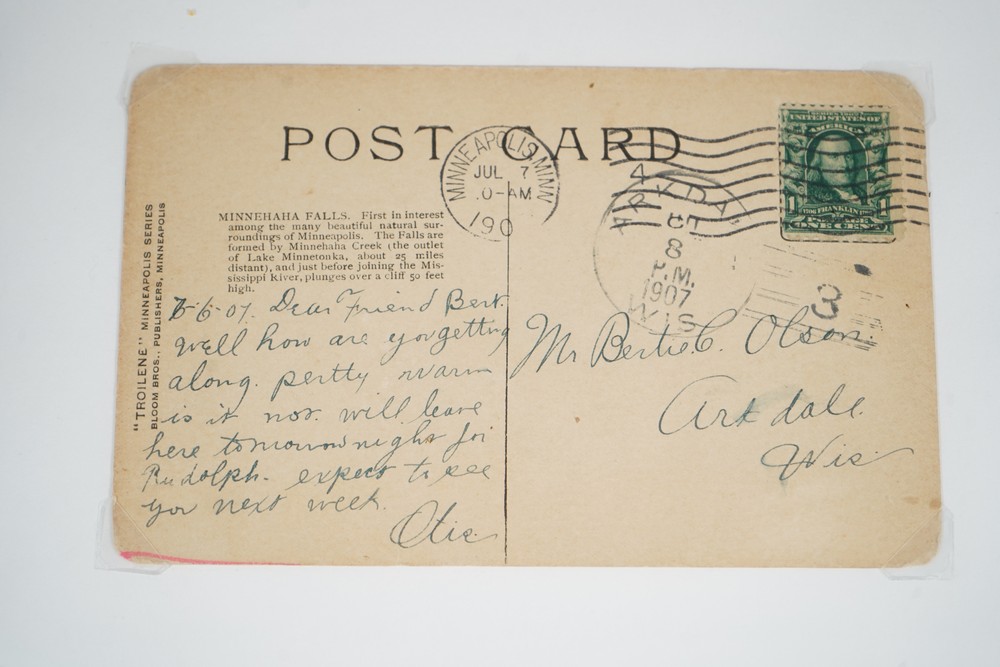 POST CARD
MINNEAPOLIS, MINN.
JUL 7
0-AM
190
ARKDA
8
P.M.
1907
WIS
SERIES 1902
UNITED STATES OF
AMERICA
1 FRANKLIN 1
ONE CENT
3
"TROILENE" MINNEAPOLIS SERIES
BLOOM BROS., PUBLISHERS, MINNEAPOLIS
MINNEHAHA FALLS. First in interest
among the many beautiful natural sur-
roundings of Minneapolis. The Falls are
formed by Minnehaha Creek (the outlet
of Lake Minnetonka, about 25 miles
distant), and just before joining the Mis-
sissippi River, plunges over a cliff 50 feet
high.
7-6-07. Dear Friend Bert.
Well how are you getting
along. pertty warm
is it not. will leave
here tomorrow night for
Rudolph. expect to see
you next week.
Otie
Mr Bertie C. Olson.
Arkdale.
Wis